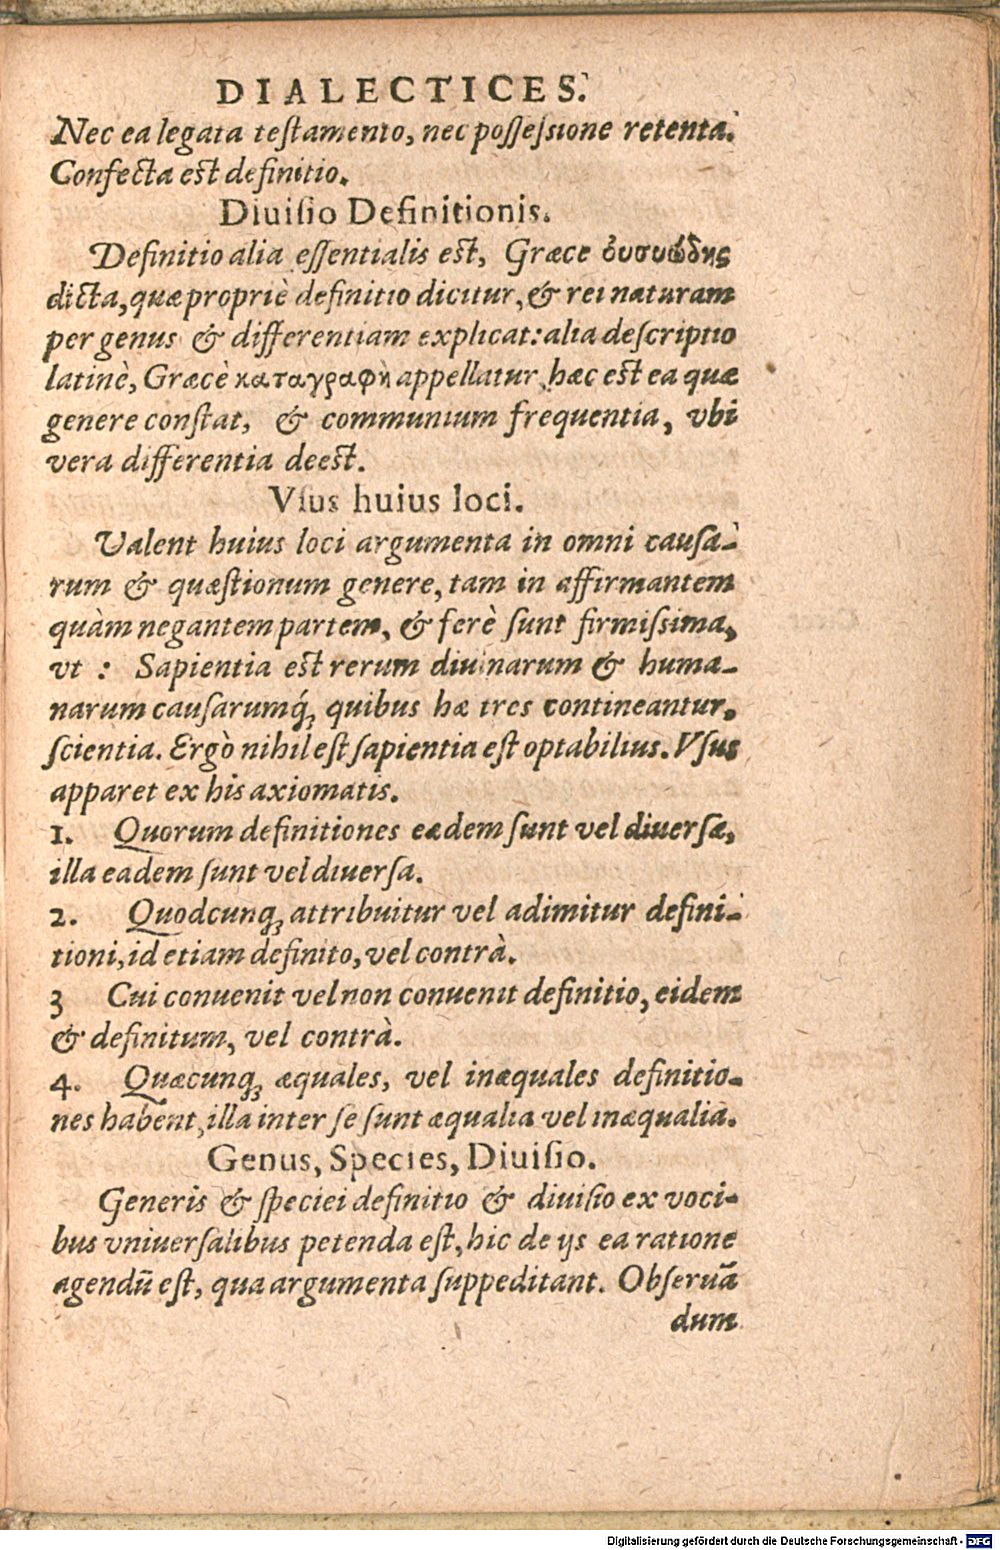 DIALECTICES.
Nec ea legata teſtamento, nec poſſeſsione retenta.
Confecta eſt definitio.
Diuiſio Definitionis.
Definitio alia eſſentialis eſt, Græce ὀυσυώδης
dicta, quæ propriè definitio dicitur, & rei naturam
per genus & differentiam explicat: alia deſcriptio
latinè, Græcè καταγραφὴ appellatur, hæc eſt ea quæ
genere conſtat, & communium frequentia, vbi
vera differentia deeſt.
Vſus huius loci.
Valent huius loci argumenta in omni cauſa-
rum & quæſtionum genere, tam in affirmantem
quàm negantem partem, & ferè ſunt firmiſsima,
vt : Sapientia eſt rerum diuinarum & huma-
narum cauſarumq́ꝫ quibus hæ tres contineantur,
ſcientia. Ergò nihil eſt ſapientia eſt optabilius. Vſus
apparet ex his axiomatis.
1. Quorum definitiones eædem ſunt vel diuerſæ,
illa eadem ſunt vel diuerſa.
2. Quodcunqꝫ attribuitur vel adimitur defini-
tioni, id etiam definito, vel contrà.
3 Cui conuenit vel non conuenit definitio, eidem
& definitum, vel contrà.
4. Quæcunqꝫ æquales, vel inæquales definitio-
nes habent, illa inter ſe ſunt æqualia vel inæqualia.
Genus, Species, Diuiſio.
Generis & ſpeciei definitio & diuiſio ex voci-
bus vniuerſalibus petenda eſt, hic de ijs ea ratione
agendū eſt, qua argumenta ſuppeditant. Obſeruā
dum
Digitalisierung gefördert durch die Deutsche Forschungsgemeinschaft - DFG